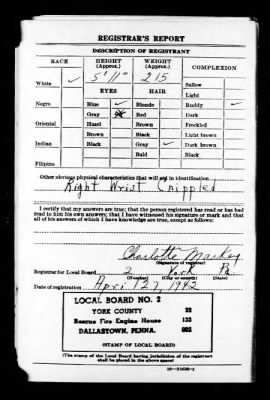 REGISTRAR'S REPORT
DESCRIPTION OF REGISTRANT
RACE HEIGHT (Approx.) WEIGHT (Approx.) COMPLEXION
5' 11" 215
White ✓ Sallow
EYES HAIR Light
Negro Blue ✓ Blonde Ruddy ✓
Gray Red Dark
Oriental Hazel Brown Freckled
Brown Black Light brown
Indian Black Gray ✓ Dark brown
Bald Black
Filipino
Other obvious physical characteristics that will aid in identification
Right Wrist Crippled
I certify that my answers are true; that the person registered has read or has had
read to him his own answers; that I have witnessed his signature or mark and that
all of his answers of which I have knowledge are true, except as follows:
Charlotte Markey
(Signature of registrar)
Registrar for Local Board 2 York Pa
(Number) (City or county) (State)
Date of registration April 27, 1942
LOCAL BOARD NO. 2
YORK COUNTY 32
Rescue Fire Engine House 133
DALLASTOWN, PENNA. 002
(STAMP OF LOCAL BOARD)
(The stamp of the Local Board having jurisdiction of the registrant
shall be placed in the above space)